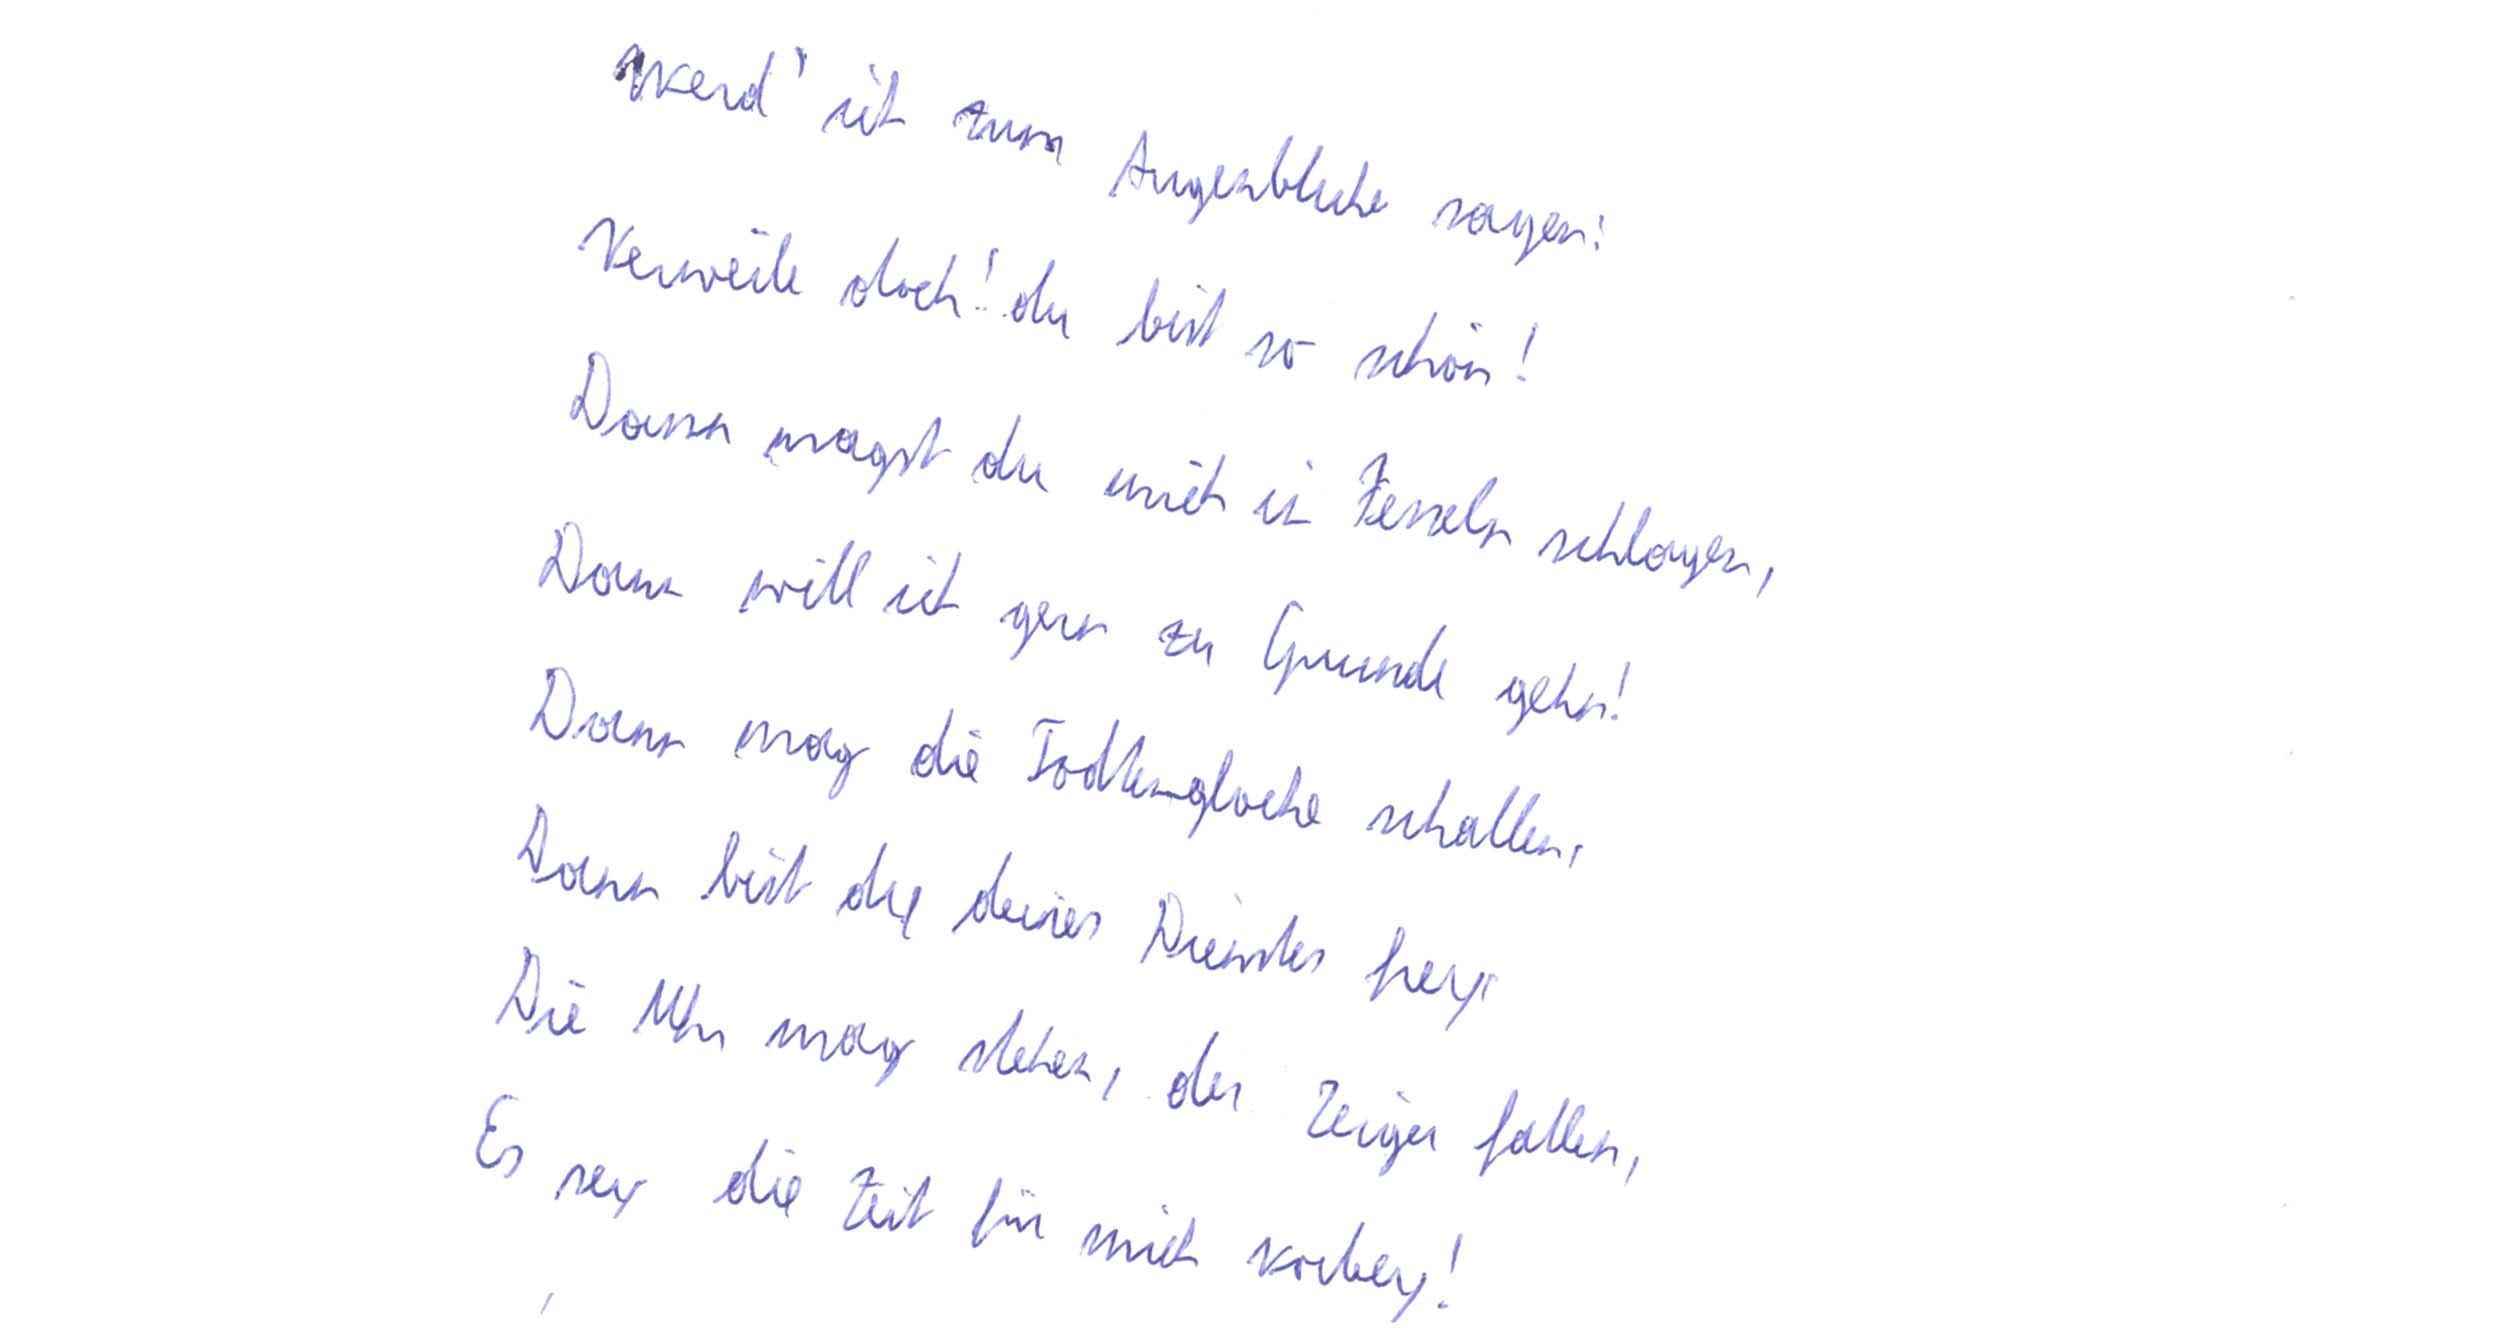 Werd' ich zum Augenblicke sagen:
Verweile doch! du bist so schön!
Dann magst du mich in Fesseln schlagen,
Dann will ich gern zu Grunde gehn!
Dann mag die Todtenglocke schallen,
Dann bist du deines Dienstes frey,
Die Uhr mag stehen, der Zeiger fallen,
Es sey die Zeit für mich vorbey!